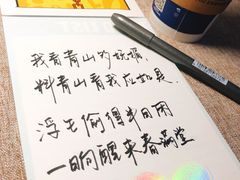 我看青山多妩媚，
料青山看我应如是。
浮生偷得半日闲
一晌醒来春满堂